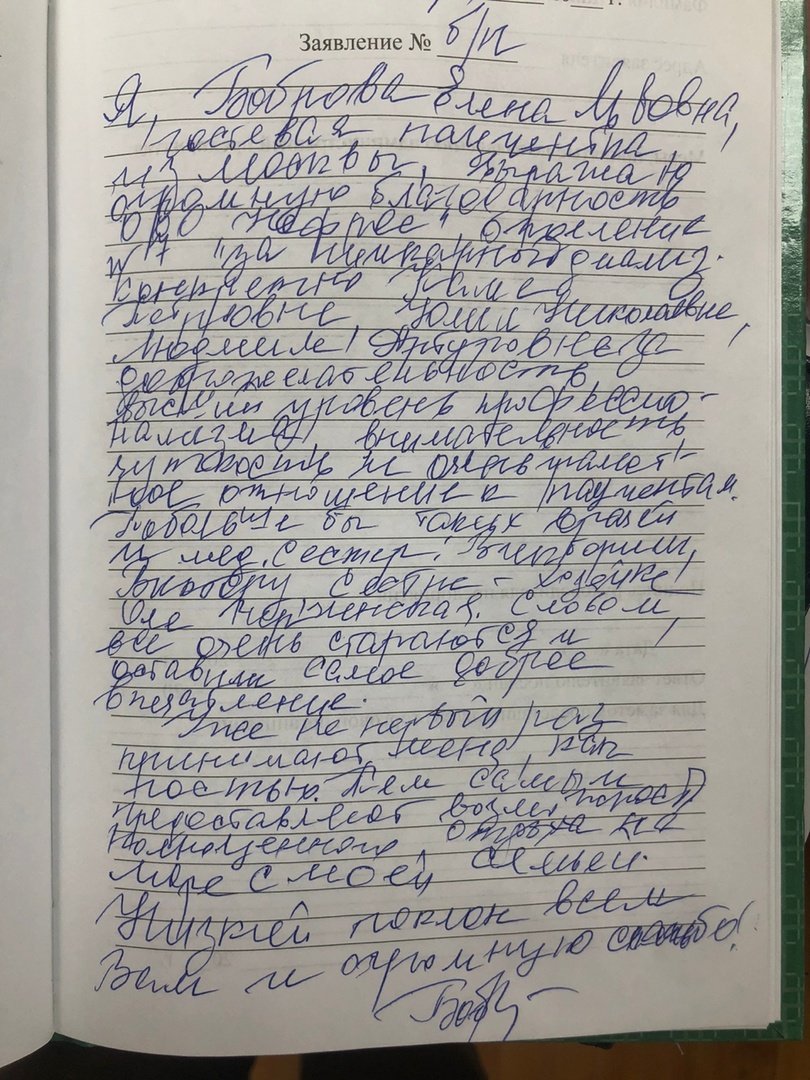 Заявление № б/н
Я, Боброва Елена Львовна,
гостевая пациентка
из Москвы, выражаю
огромную благодарность
ООО "Нефрос", отделение
№7 "за шикарный диализ.
Конкретно
Петровне Юлии Николаевне,
Людмиле Артуровне за
доброжелательность,
высший уровень профессио-
нализма, внимательность,
чуткость и
ное отношение к пациентам.
Побольше бы таких врачей
и мед. сестер!
сестре - хозяйке
Оле Словом,
все очень стараются и
оставили самое доброе
впечатление.
Уже не первый раз
принимают меня, как
гостью. Тем самым
предоставляют возможность
полноценного отдыха на
море с моей семьей.
Низкий поклон всем
Вам и огромную спасибо!